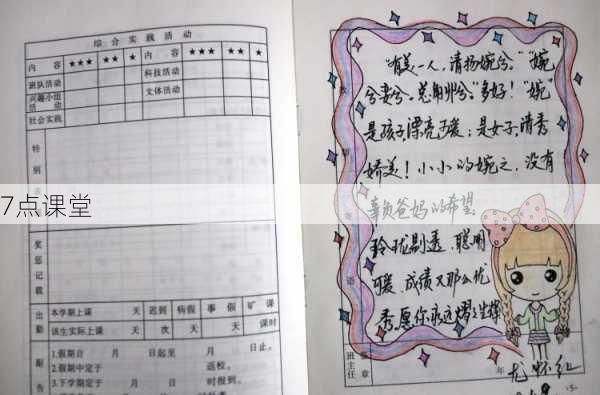 综合实践活动
内容 ★★★ ★★ ★ 内容 ★★★ ★★ ★
班队活动 科技活动
兴趣小组活动 文体活动
社会实践
特别
奖惩记载
出勤 本学期上课 天 迟到 病假 事假 旷课
该生实际上课 天 次 天 天 课时
附告
1.假期自 月 日起至 月 日止。
2.假期中定于 返校。
3.下学期定于 月 时报到。
"有美一人,清扬婉兮。""婉
兮娈兮。总角丱兮。"多好!"婉"
是孩子,漂亮可爱;是女子,清秀
娇美!小小的婉之,没有
辜负爸妈的希望,
玲珑剔透,聪明
可爱,成绩又那么优
秀。愿你永远
班主任 签章
年
7点课堂